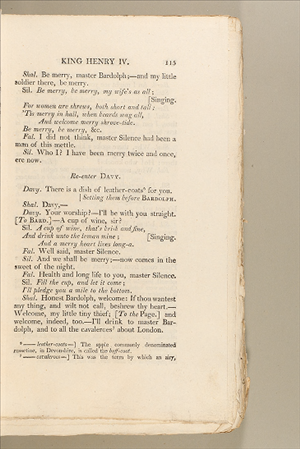 KING HENRY IV.	115
Shal. Be merry, master Bardolph;—and my little
soldier there, be merry.
Sil. Be merry, be merry, my wife's as all;
[Singing.
For women are shrews, both short and tall:
'Tis merry in hall, when beards wag all,
And welcome merry shrove-tide.
Be merry, be merry, &c.
Fal. I did not think, master Silence had been a
man of this mettle.
Sil. Who I? I have been merry twice and once,
ere now.
Re-enter DAVY.
Davy. There is a dish of leather-coats⁹ for you.
[Setting them before BARDOLPH.
Shal. Davy,—
Davy. Your worship?—I'll be with you straight.
[To BARD.]—A cup of wine, sir?
Sil. A cup of wine, that's brisk and fine,
And drink unto the leman mine; [Singing.
And a merry heart lives long-a.
Fal. Well said, master Silence.
Sil. And we shall be merry;—now comes in the
sweet of the night.
Fal. Health and long life to you, master Silence.
Sil. Fill the cup, and let it come;
I'll pledge you a mile to the bottom.
Shal. Honest Bardolph, welcome: If thou wantest
any thing, and wilt not call, beshrew thy heart.—
Welcome, my little tiny thief; [To the Page.] and
welcome, indeed, too.—I'll drink to master Bar-
dolph, and to all the cavaleroes¹ about London.
⁹ —— leather-coats—] The apple commonly denominated
russetine, in Devonshire, is called the buff-coat.
¹ —— cavaleroes—] This was the term by which an airy,